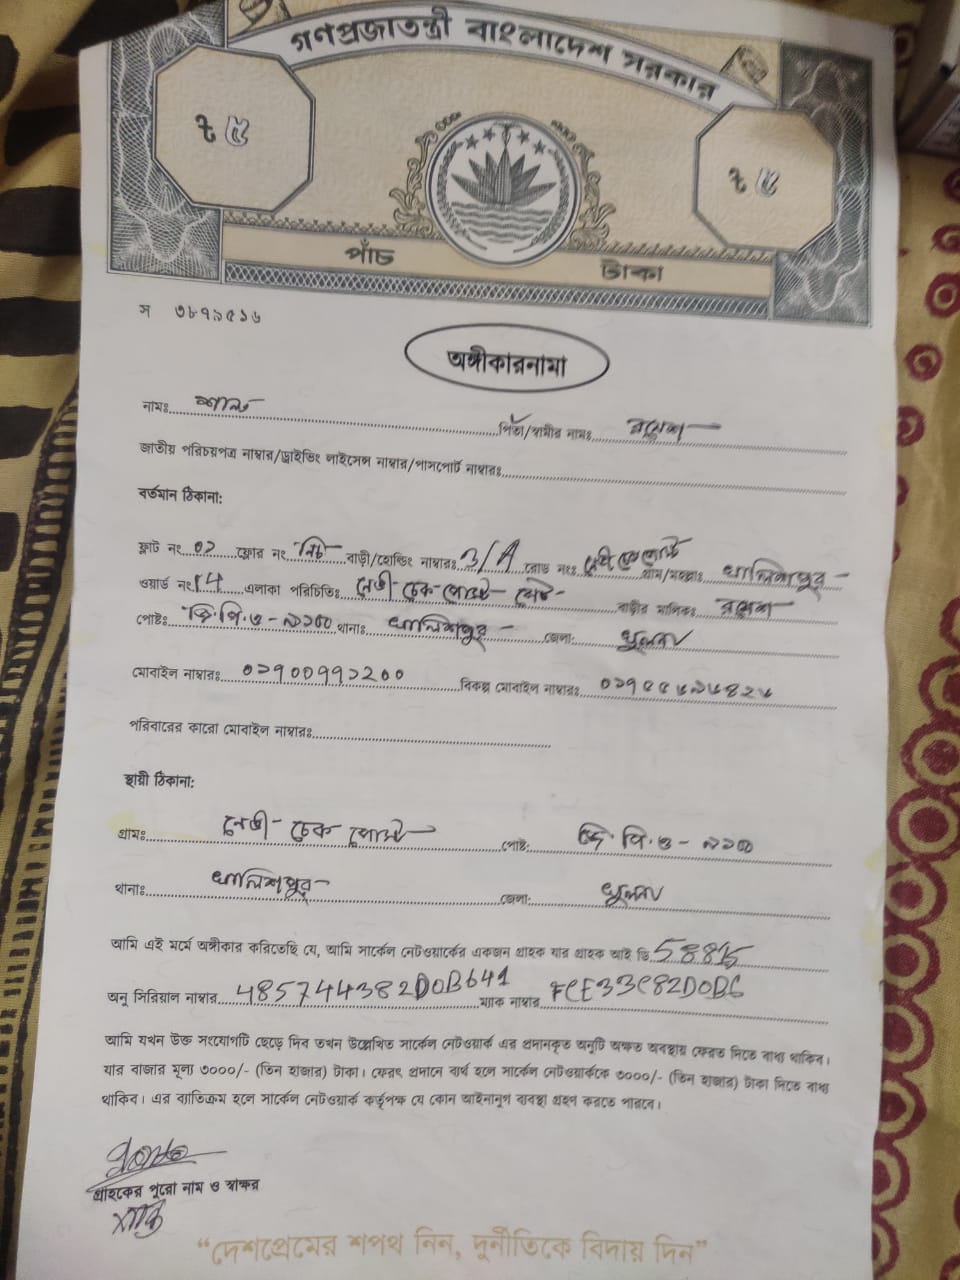 গণপ্রজাতন্ত্রী বাংলাদেশ সরকার
৳ ৫ ৳ ৫
পাঁচ টাকা
স ৩৮৭৯৫১৬
অঙ্গীকারনামা
নামঃ পিতা/স্বামীর নামঃ রমেশ
জাতীয় পরিচয়পত্র নাম্বার/ড্রাইভিং লাইসেন্স নাম্বার/পাসপোর্ট নাম্বারঃ
বর্তমান ঠিকানা:
ফ্লাট নং ০১ ফ্লোর নং নিচ বাড়ী/হোল্ডিং নাম্বারঃ 3/A রোড নংঃ গ্রাম/মহল্লাঃ খালিশপুর
ওয়ার্ড নং 14 এলাকা পরিচিতিঃ নেভী চেক পোস্ট বাড়ীর মালিকঃ রমেশ
পোষ্টঃ জি.পি.ও - ৯১০০ থানাঃ খালিশপুর জেলা: খুলনা
মোবাইল নাম্বারঃ বিকল্প মোবাইল নাম্বারঃ
পরিবারের কারো মোবাইল নাম্বারঃ
স্থায়ী ঠিকানা:
গ্রামঃ নেভী চেক পোস্ট পোষ্ট: জি.পি.ও - ৯১০০
থানাঃ খালিশপুর জেলা: খুলনা
আমি এই মর্মে অঙ্গীকার করিতেছি যে, আমি সার্কেল নেটওয়ার্কের একজন গ্রাহক যার গ্রাহক আই ডি
অনু সিরিয়াল নাম্বার 485744382D0B641 ম্যাক নাম্বার FCE33C82D0DG
আমি যখন উক্ত সংযোগটি ছেড়ে দিব তখন উল্লেখিত সার্কেল নেটওয়ার্ক এর প্রদানকৃত অনুটি অক্ষত অবস্থায় ফেরত দিতে বাধ্য থাকিব।
যার বাজার মূল্য ৩০০০/- (তিন হাজার) টাকা। ফেরৎ প্রদানে ব্যর্থ হলে সার্কেল নেটওয়ার্ককে ৩০০০/- (তিন হাজার) টাকা দিতে বাধ্য
থাকিব। এর ব্যতিক্রম হলে সার্কেল নেটওয়ার্ক কর্তৃপক্ষ যে কোন আইনানুগ ব্যবস্থা গ্রহণ করতে পারবে।
গ্রাহকের পুরো নাম ও স্বাক্ষর
“দেশপ্রেমের শপথ নিন, দুর্নীতিকে বিদায় দিন”